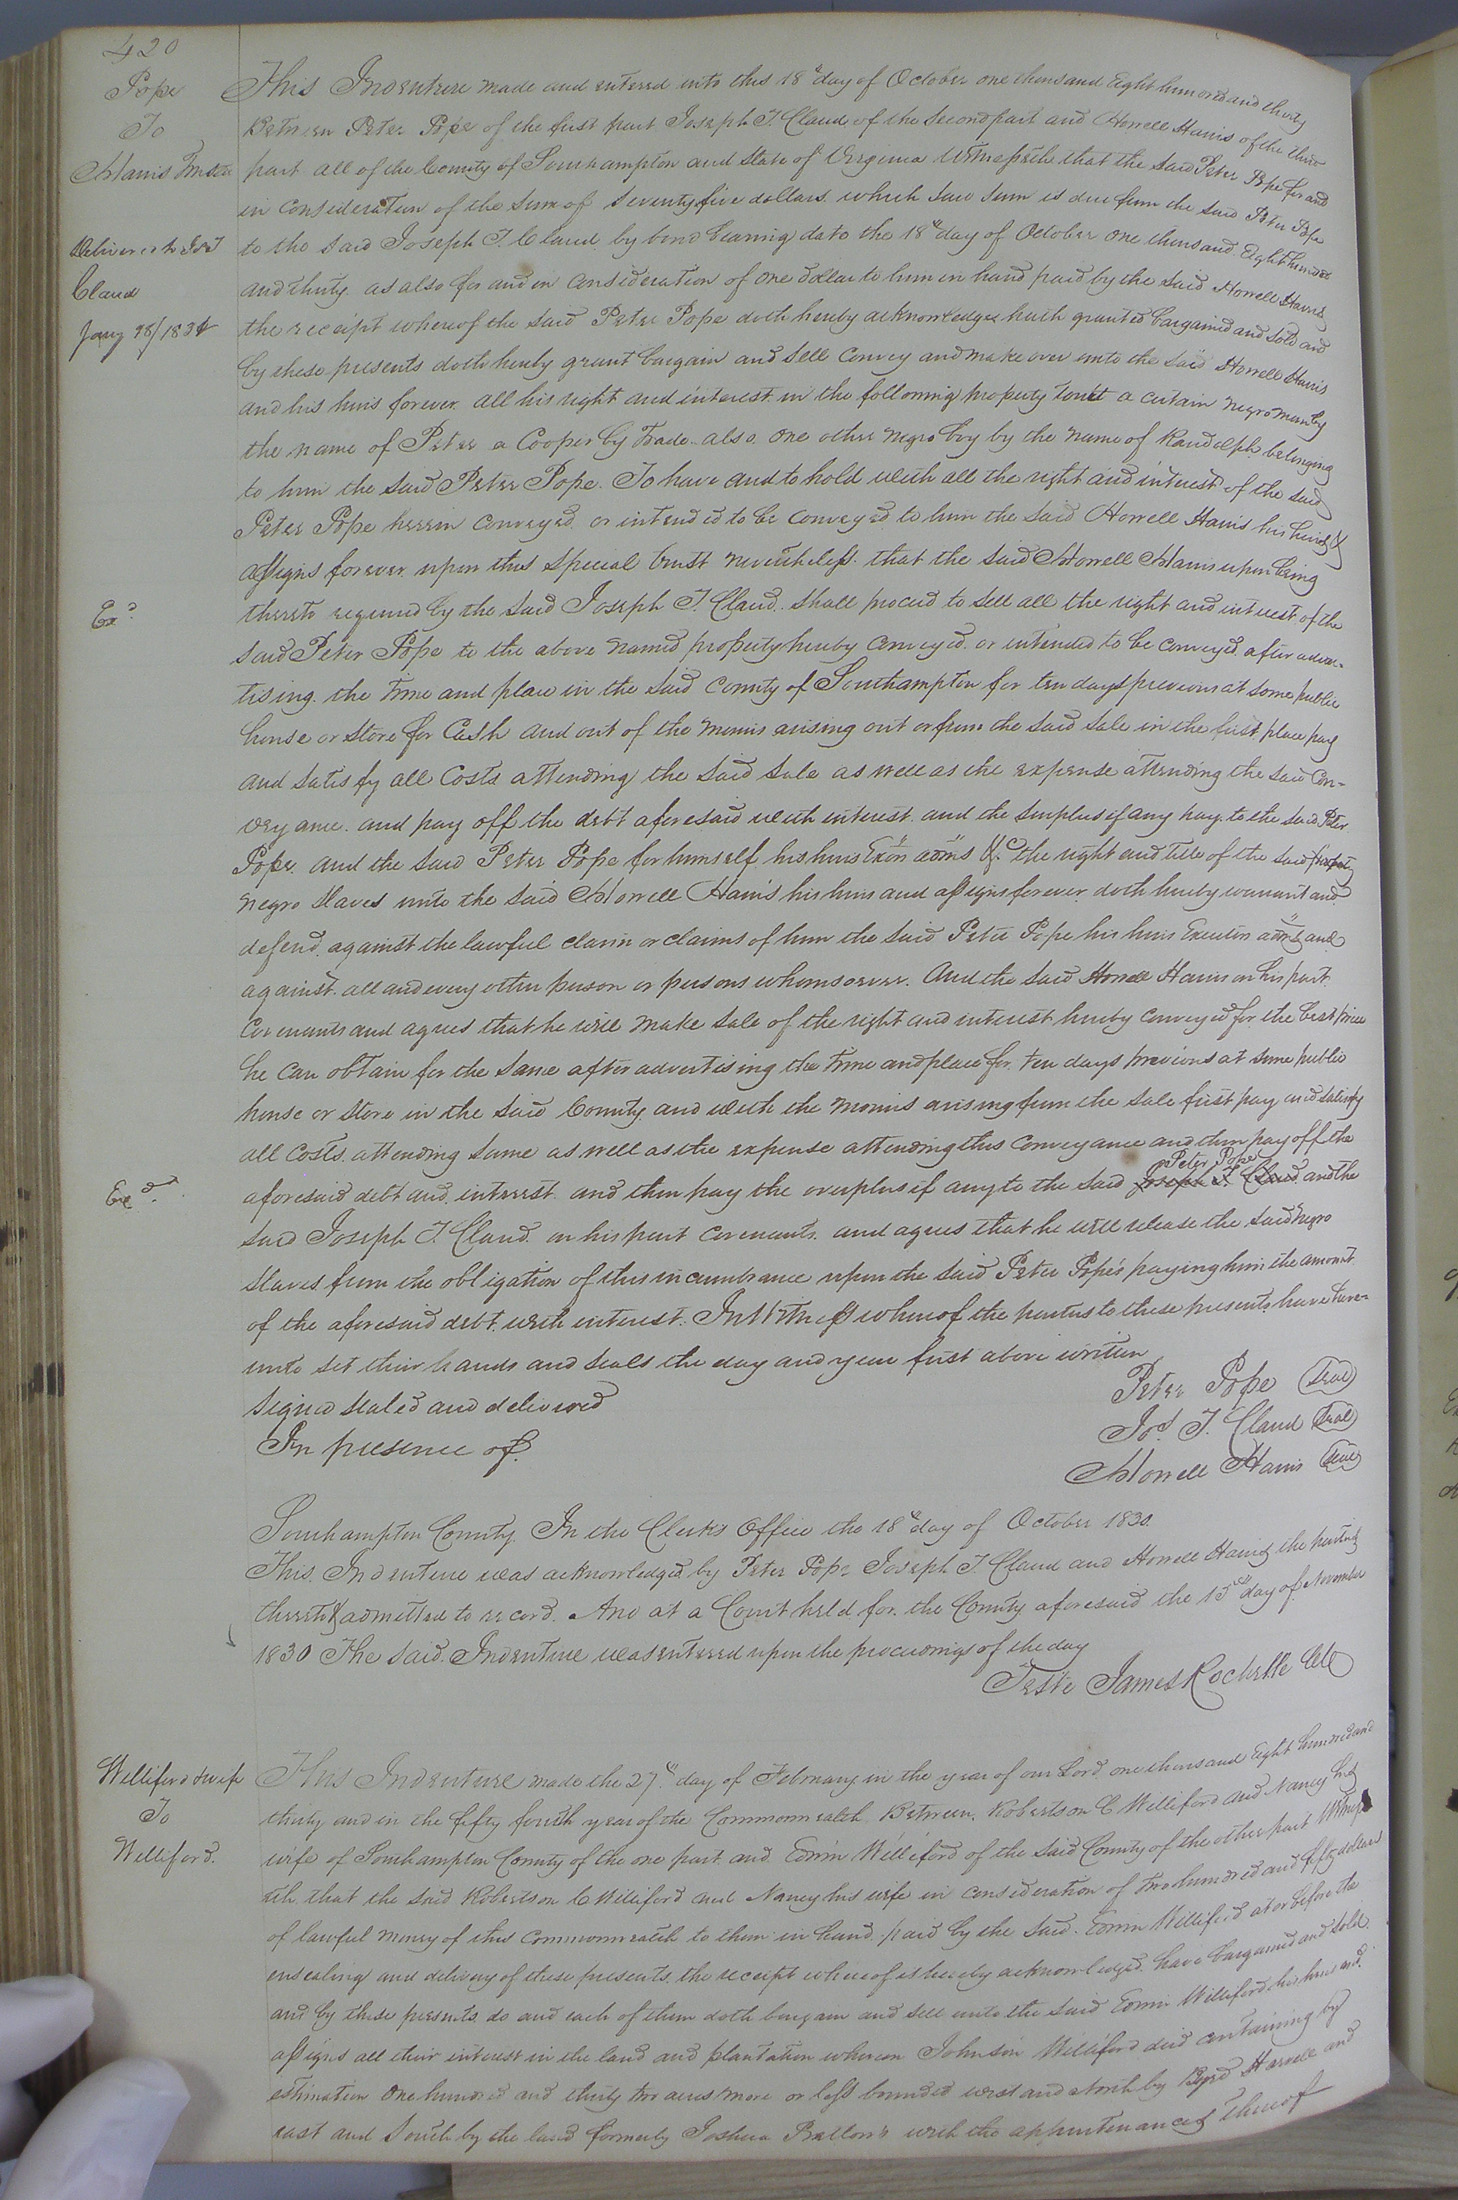 420
Pope
To
Harris Trustee
Delivered to Jos T
Claud
Jany 28/1834
This Indenture made and entered into this 18th day of October one thousand Eight hundred and thirty
Between Peter Pope of the first part Joseph T. Claud of the Second part and Howell Harris of the third
part all of the County of Southampton and State of Virginia Witnesseth that the said Peter Pope for and
in consideration of the sum of Seventy five dollars which said sum is due from the said Peter Pope
to the said Joseph T. Claud by bond bearing date the 18th day of October one thousand Eight hundred
and thirty as also for and in consideration of one dollar to him in hand paid by the said Howell Harris
the receipt whereof the said Peter Pope doth hereby acknowledge hath granted bargained and sold and
by these presents doth hereby grant bargain and sell convey and make over unto the said Howell Harris
and his heirs forever all his right and interest in the following property towit a certain negro man by
the name of Peter a Cooper by Trade also one other negro boy by the name of Randolph belonging
to him the said Peter Pope. To have and to hold with all the right and interest of the said
Peter Pope herein conveyed or intended to be conveyed to him the said Howell Harris his heirs &
assigns forever upon this special trust nevertheless that the said Howell Harris upon being
Exd
thereto required by the said Joseph T. Claud shall proceed to sell all the right and interest of the
said Peter Pope to the above named property hereby conveyed or intended to be conveyed after adver-
tising the time and place in the said County of Southampton for ten days previous at some public
house or store for Cash and out of the monies arising out or from the said sale in the first place pay
and satisfy all Costs attending the said sale as well as the expense attending the said Con-
veyance and pay off the debt aforesaid with interest and the surplus if any pay to the said Peter
Pope and the said Peter Pope for himself his heirs Exors adms &c the right and title of the said property
negro slaves unto the said Howell Harris his heirs and assigns forever doth hereby warrant and
defend against the lawful claim or claims of him the said Peter Pope his heirs Executors adms and
against all and every other person or persons whomsoever. And the said Howell Harris on his part
Covenants and agrees that he will make sale of the right and interest hereby conveyed for the best price
he can obtain for the same after advertising the time and place for ten days previous at some public
house or store in the said County and with the monies arising from the sale first pay and satisfy
all Costs attending same as well as the expense attending this conveyance and then pay off the
Peter Pope
Exd
aforesaid debt and interest and then pay the overplus if any to the said Joseph T. Claud and the
said Joseph T. Claud on his part covenants and agrees that he will release the said negro
slaves from the obligation of this incumbrance upon the said Peter Pope's paying him the amount
of the aforesaid debt with interest. In Witness whereof the parties to these presents have here-
unto set their hands and seals the day and year first above written
Signed sealed and delivered
In presence of
Peter Pope Seal
Jos. T. Claud Seal
Howell Harris Seal
Southampton County In the Clerks Office the 18th day of October 1830.
This Indenture was acknowledged by Peter Pope Joseph T. Claud and Howell Harris the parties
thereto & admitted to record. And at a Court held for the County aforesaid the 15th day of November
1830 The said Indenture was entered upon the proceedings of the day
Teste James Rochelle Clk
Williford & wife
To
Williford.
This Indenture made the 27th day of February in the year of our Lord one thousand Eight hundred and
thirty and in the fifty fourth year of the Commonwealth Between Robertson C Williford and Nancy his
wife of Southampton County of the one part and Edwin Williford of the said County of the other part Witness
eth that the said Robertson C Williford and Nancy his wife in consideration of two hundred and fifty dollars
of lawful money of this commonwealth to them in hand paid by the said Edwin Williford at or before the
ensealing and delivery of these presents the receipt whereof is hereby acknowledged have bargained and sold
and by these presents do and each of them doth bargain and sell unto the said Edwin Williford his heirs and
assigns all their interest in the land and plantation whereon Johnson Williford died containing by
estimation One hundred and thirty two acres more or less bounded west and north by Byrd Harvell and
east and South by the land formerly Joshua Batton's with the appurtenances thereof